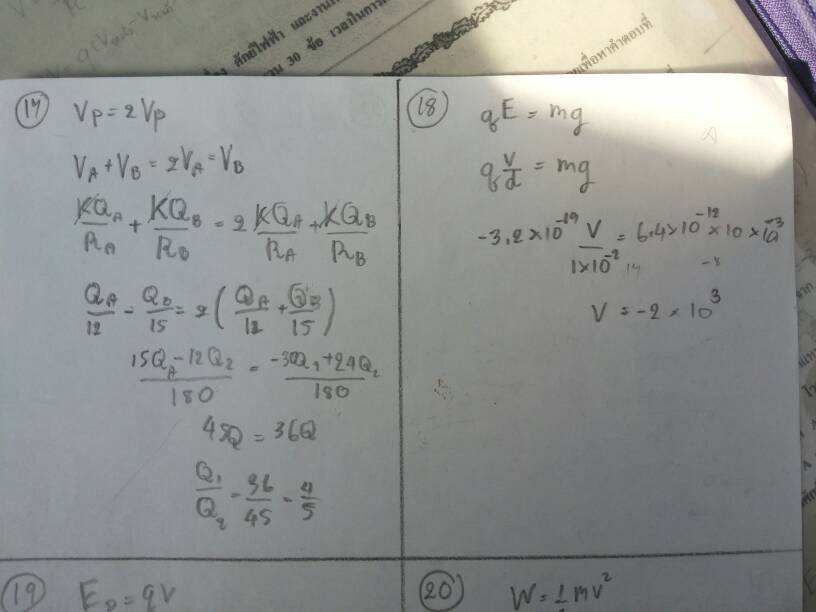 ศักย์ไฟฟ้า และงานใน
30 ข้อ เวลาในการ
เพื่อหาคำตอบที่
17
Vp = 2Vp
VA + VB = 2VA = VB
KQA/RA + KQB/RB = 2 KQA/RA + KQB/RB
QA/12 - QB/15 = 2(QA/12 + QB/15)
15QA - 12Q2/180 = -30Q1 + 24Q2/180
45Q = 36Q
Q1/Q2 = 36/45 = 4/5
18
qE = mg
q V/d = mg
-3.2×10^-19 V/1×10^-2 = 6.4×10^-12 × 10 × 10^-3
14 -8
V = -2 × 10^3
19
Ep = qV
20
W = 1/2 mv^2